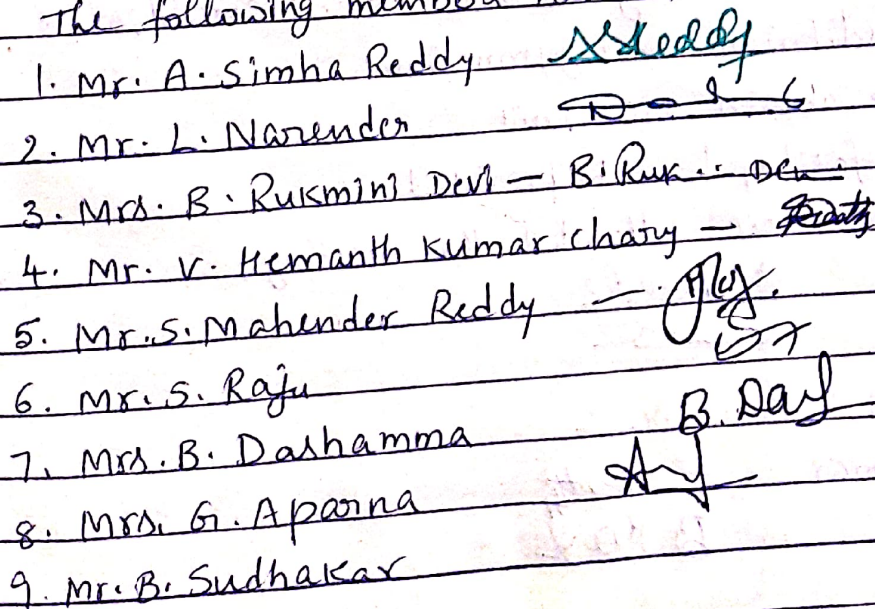 The following
1. Mr. A. Simha Reddy SReddy
2. Mr. L. Narender
3. Mrs. B. Rukmini Devi - B. Ruk
4. Mr. V. Hemanth Kumar chary -
5. Mr. S. Mahender Reddy -
6. Mr. S. Raju
7. Mrs. B. Dashamma B. Das
8. Mrs. G. Aparna
9. Mr. B. Sudhakar